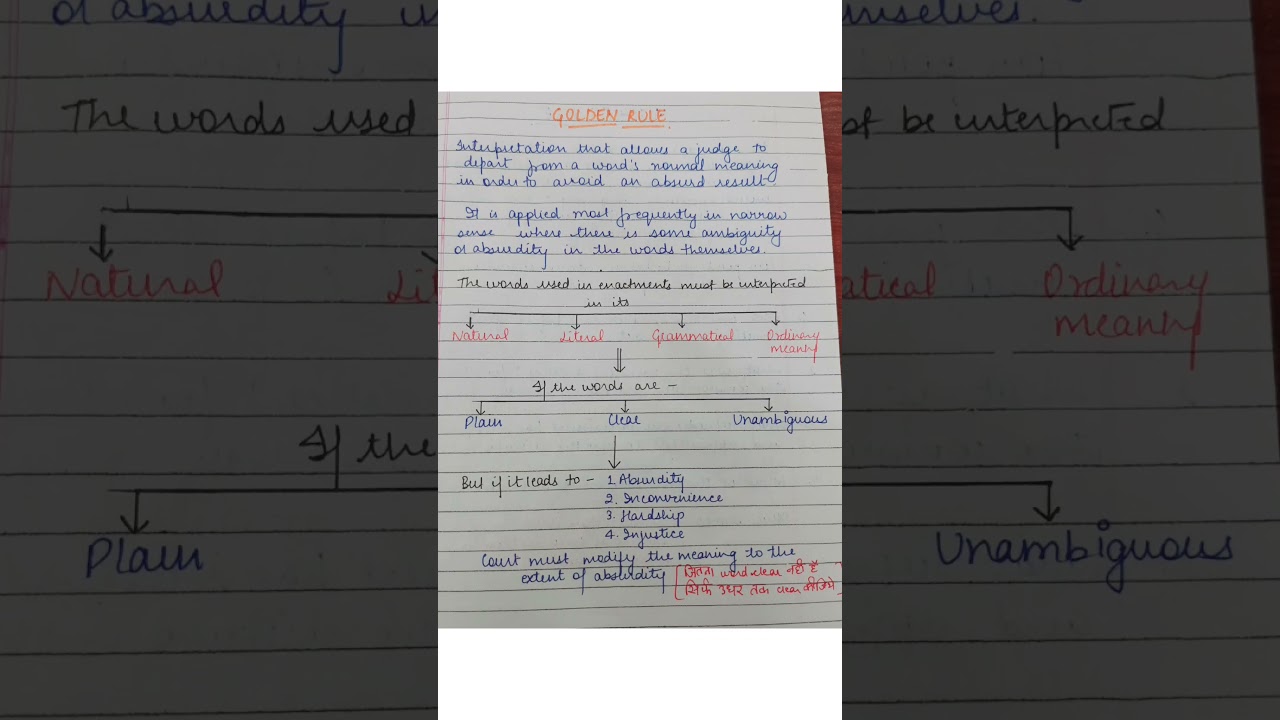 GOLDEN RULE
Interpretation that allows a judge to
depart from a word's normal meaning
in order to avoid an absurd result.
It is applied most frequently in narrow
sense where there is some ambiguity
or absurdity in the words themselves.
The words used in enactments must be interpreted
in its
Natural Literal Grammatical Ordinary
meaning
If the words are -
Plain Clear Unambiguous
But if it leads to - 1. Absurdity
2. Inconvenience
3. Hardship
4. Injustice
Court must modify the meaning to the
extent of absurdity [जितना word clear नहीं है
सिर्फ उधर तक clear कीजिये]
or absurdity in
mselves.
The words used
ot be interpreted
Natural Lit
atical Ordinary
meaning
If the
Plain Unambiguous